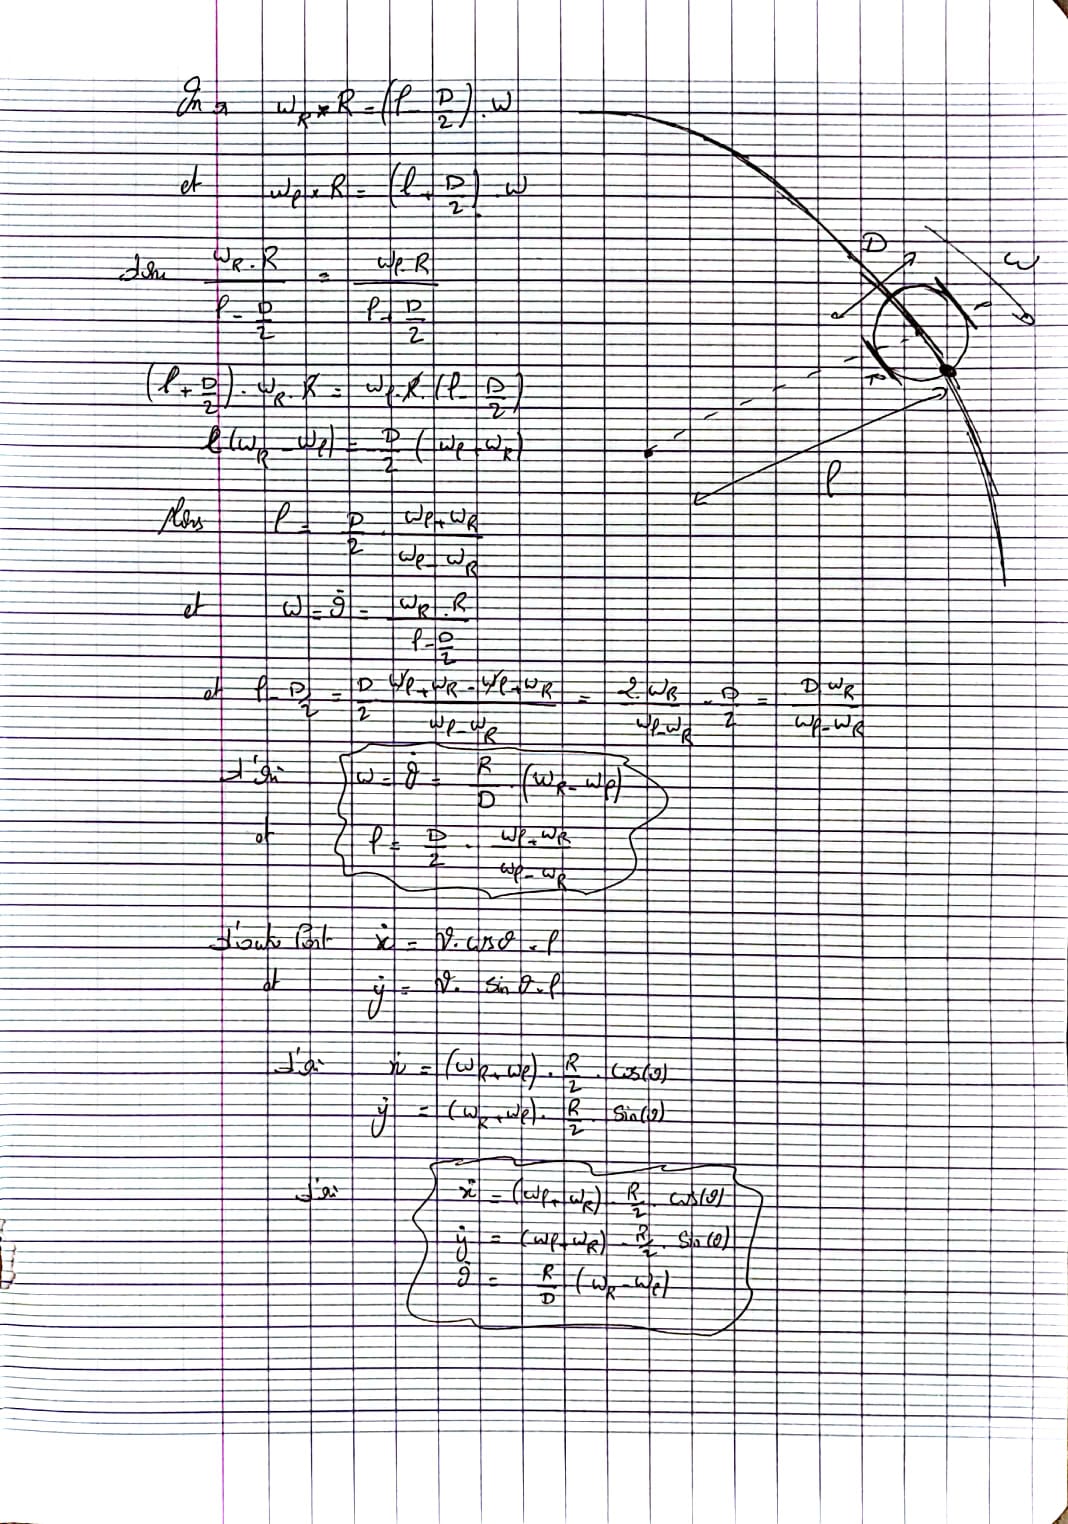 On a ω_R × R = (l - D/2) . ω
et ω_l × R = (l + D/2) . ω
donc ω_R . R / (l - D/2) = ω_l . R / (l + D/2)
(l + D/2) . ω_R . R = ω_l . R . (l - D/2)
l (ω_R - ω_l) = D/2 (ω_l + ω_R)
Alors l = D/2 . (ω_l + ω_R) / (ω_l - ω_R)
et ω = θ̇ = ω_R . R / (l - D/2)
et l - D/2 = D/2 (ω_l + ω_R - ω_l + ω_R) / (ω_l - ω_R) = 2 . ω_R / (ω_l - ω_R) . D/2 = D ω_R / (ω_l - ω_R)
d'où ω = θ̇ = R/D . (ω_R - ω_l)
et l = D/2 . (ω_l + ω_R) / (ω_l - ω_R)
d'autre Part ẋ = θ̇ . cos θ . l
et ẏ = θ̇ . sin θ . l
d'où ẋ = (ω_R + ω_l) . R/2 . cos(θ)
ẏ = (ω_R + ω_l) . R/2 . sin(θ)
d'où ẋ = (ω_l + ω_R) . R/2 . cos(θ)
ẏ = (ω_l + ω_R) . R/2 . sin(θ)
θ̇ = R/D (ω_R - ω_l)
D
ω
l